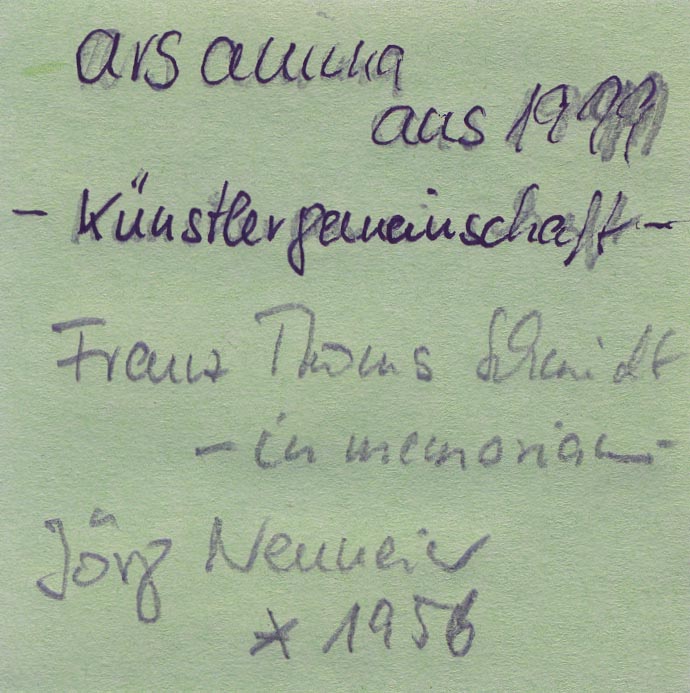 ars anima
aus 1999
- Künstlergemeinschaft -
Franz Thoms Schmidt
- in memoriam -
Jörg Neumeier
* 1956